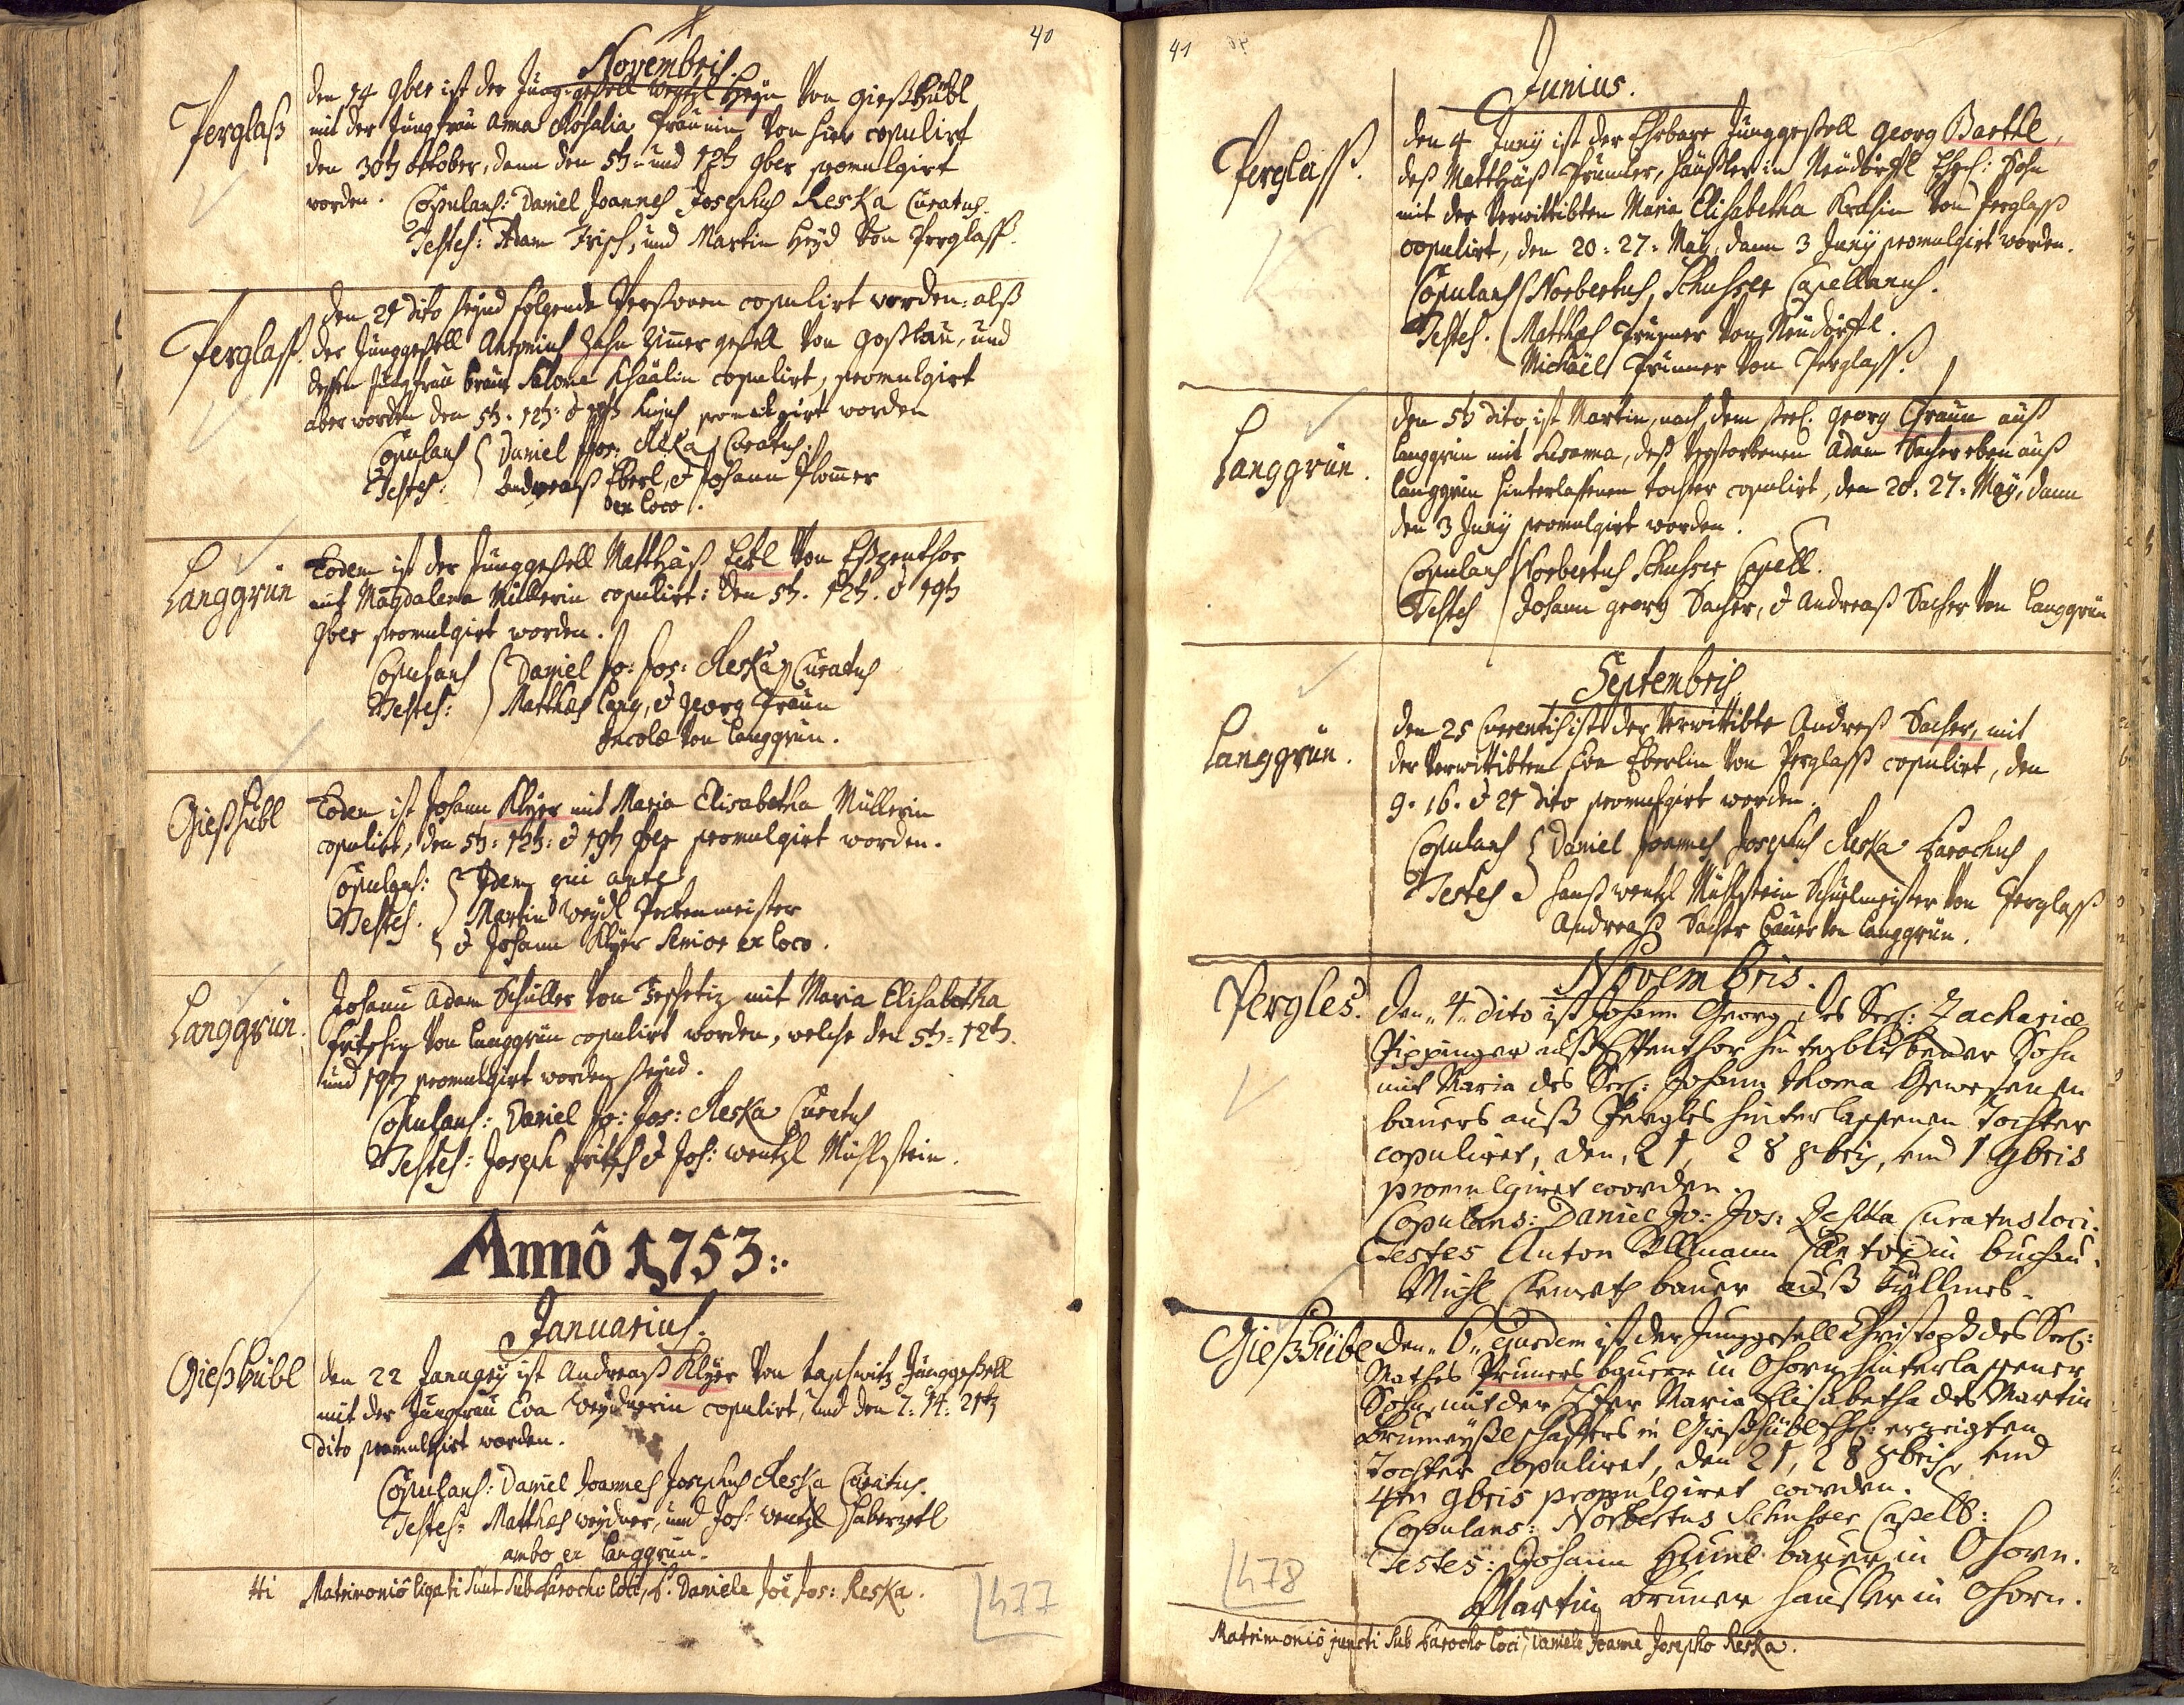 40
Novembris.
Perglaß
den 14 9ber ist der Jung-gesell Wentzl Heÿn von Gießhübl
mit der Jungfrau Anna Rosalia von hier copulirt
den 30t october, dann den 5t und 12t 9ber promulgirt
worden. Copulans: Daniel Joannes Josephus Reska Curatus.
Testes: Adam Frisch, und Martin Heÿd von Perglaß.
Perglaß.
den 21 dito seÿnd folgende Personen copulirt worden: alß
der Junggesell Antonius Hahn Zimer gesell von, und
dessen Jungfrau braut Salome copulirt, promulgirt
aber worden den 5t. 12t: & 19t hujus promulgirt worden
Copulans Daniel Jos: Reska Curatus
Testes: Andreaß Eberl, & Johann
ex loco.
Langgrün
Eodem ist der Junggesell Matthäß Ertl von
mit Magdalena Müllerin copulirt: den 5t. 12t. & 19t
9ber promulgirt worden.
Copulans Daniel Jo: Jos: Reska Curatus
Testes: Matthes Lang, & Georg Praun
Incolæ von Langgrün.
Gießhübl
Eodem ist Johann Klÿer mit Maria Elisabetha Müllerin
copulirt, den 5t: 12t: & 19t 9ber promulgirt worden.
Copulans: Idem qui ante
Testes. Martin Weÿdl
& Johann Klÿer Senior ex loco.
Langgrün.
Johann Adam Schuller von mit Maria Elisabetha
Fritschin von Langgrün copulirt worden, welche den 5t: 12t.
und 19t promulgirt worden seÿnd.
Copulans: Daniel Jo: Jos: Reska Curatus
Testes: Joseph Fritsch & Joh: Wentzl Mühlstein.
Annô 1753:.
Januarius.
Gießhübl
den 22 Januarÿ ist Andreaß Klÿer von Taschwitz Junggesell
mit der Jungfrau Eva Weÿdnerin copulirt, und den 7: 14: 21t
dito promulgirt worden.
Copulans: Daniel Joannes Josephus Reska Curatus.
Testes: Matthes Weÿdner, und Joh: Wentzl Haberzetl
ambo ex Langgrün.
Hi Matrimoniô ligati sunt sub Parocho loci, P. Daniele Joe Jos: Reska.
477
41
Junius.
Perglaß.
den 4 Junÿ ist der Ehrbare Junggesell Georg Barthl,
deß Matthäß Prunner, Häußler in Neudörfl Ehel: Sohn
mit der verwittibten Maria Elisabetha von Perglaß
copulirt, den 20: 27: Maÿ, dann 3 Junÿ promulgirt worden.
Copulans Norbertus Schusser Capellanus.
Testes. Matthes Prunner von Neudörfl.
Michäel Prunner von Perglaß.
Langgrün.
den 5t dito ist Martin, nach dem Seel. Georg Praun auß
Langgrün mit Susanna, deß verstorbenen Adam Sacher eben auß
Langgrün hinterlassenen tochter copulirt, den 20. 27. Maÿ, dann
den 3 Junÿ promulgirt worden.
Copulans Norbertus Schusser Capell.
Testes Johann Georg Sacher, & Andreaß Sacher von Langgrün
Septembris.
Langgrün.
den 25 Currentis ist der verwittibte Andreß Sacher, mit
der verwittibten Eva Eberlin von Perglaß copulirt, den
9. 16. & 21 dito promulgirt worden.
Copulans Daniel Joannes Josephus Reska Parochus
Testes Hanß Wentzl Mühlstein Schulmeister von Perglaß
Andreaß Sacher Bauer von Langgrün.
Novembris.
Pergles.
den 4 dito ist Johann Georg des Seel: Zachariæ
Pippinger auß hinterblibener Sohn
mit Maria des Seel: Johann Thoma Gewesenen
bauers auß Pergles hinterlassenen Tochter
copuliret, den 21, 28 8bris, und 1 9bris
promulgiret worden.
Copulans: Daniel Jo: Jos: Reska Curatus loci.
Testes Anton Ullmann Cantor in buchau.
Michl bauer auß Tÿllmes.
Gießhübl
den 6 ejusdem ist der Junggesell Christoph des Seel:
Mathes Pruners bauern in Ohorn hinterlassener
Sohn, mit der Maria Elisabetha des Martin
schaffers in Gießhübl Ehel: erzeigten
Tochter copuliret, den 21, 28 8bris, und
4ten 9bris promulgiret worden.
Copulans: Norbertus Schusser Capell:
Testes: Johann bauer in Ohorn.
Martin Bruner Hausler in Ohorn.
478
Matrimoniô juncti sub Parocho loci, Daniele Joanne Josepho Reska.